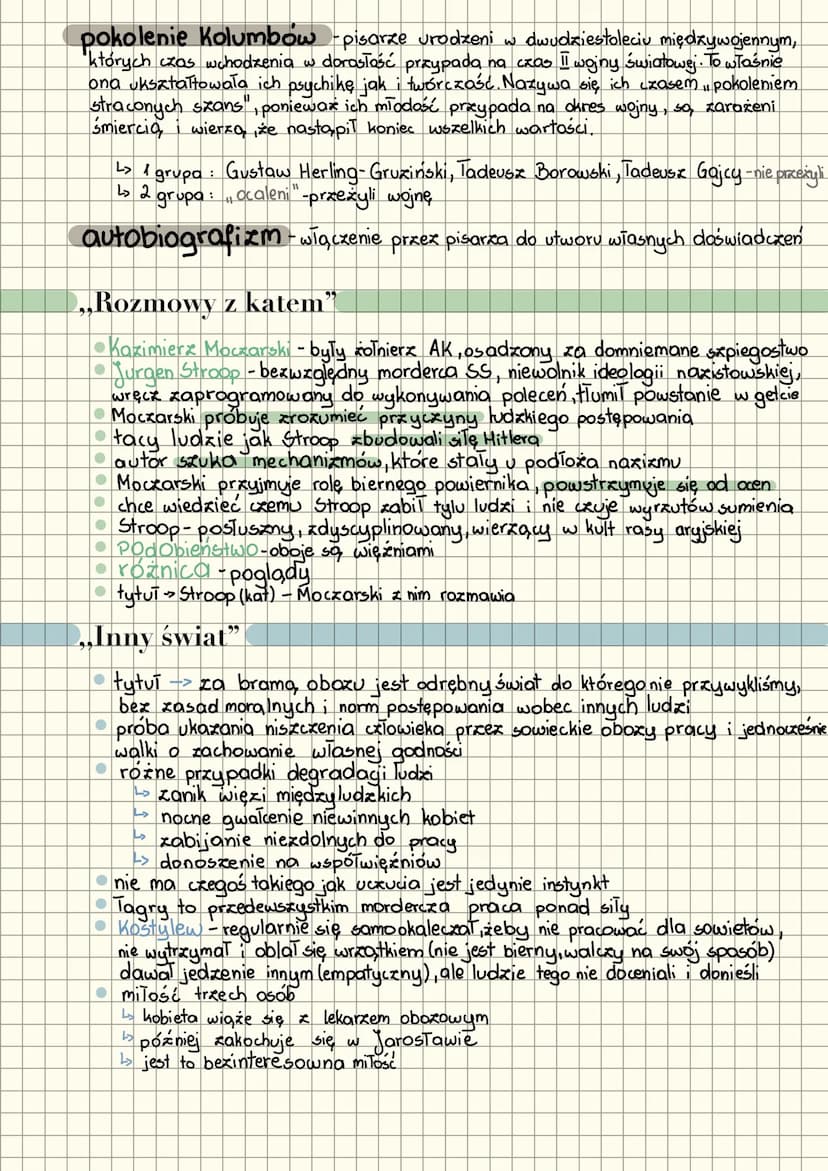 pokolenie Kolumbów - pisarze urodzeni w dwudziestoleciu międzywojennym,
których czas wchodzenia w dorosłość przypada na czas II wojny światowej. To właśnie
ona ukształtowała ich psychikę jak i twórczość. Nazywa się ich czasem „pokoleniem
straconych szans", ponieważ ich młodość przypada na okres wojny, są zarażeni
śmiercią i wierzą, że nastąpił koniec wszelkich wartości.
↳ 1 grupa: Gustaw Herling-Grudziński, Tadeusz Borowski, Tadeusz Gajcy - nie przeżyli
↳ 2 grupa: „ocaleni" - przeżyli wojnę
autobiografizm - włączenie przez pisarza do utworu własnych doświadczeń
„Rozmowy z katem”
• Kazimierz Moczarski - były żołnierz AK, osadzony za domniemane szpiegostwo
• Jurgen Stroop - bezwzględny morderca SS, niewolnik ideologii nazistowskiej,
wręcz zaprogramowany do wykonywania poleceń, tłumił powstanie w getcie
• Moczarski próbuje zrozumieć przyczyny ludzkiego postępowania
• tacy ludzie jak Stroop zbudowali siłę Hitlera
• autor szuka mechanizmów, które stały u podłoża nazizmu
• Moczarski przyjmuje rolę biernego powiernika, powstrzymuje się od ocen
• chce wiedzieć czemu Stroop zabił tylu ludzi i nie czuje wyrzutów sumienia
• Stroop - posłuszny, zdyscyplinowany, wierzący w kult rasy aryjskiej
• POdObieństwo - oboje są więźniami
• różnica - poglądy
• tytuł → Stroop (kat) - Moczarski z nim rozmawia
„Inny świat”
• tytuł --> za bramą obozu jest odrębny świat do którego nie przywykliśmy,
bez zasad moralnych i norm postępowania wobec innych ludzi
• próba ukazania niszczenia człowieka przez sowieckie obozy pracy i jednocześnie
walki o zachowanie własnej godności
• różne przypadki degradacji ludzi
↳ zanik więzi międzyludzkich
↳ nocne gwałcenie niewinnych kobiet
↳ zabijanie niezdolnych do pracy
↳ donoszenie na współwięźniów
• nie ma czegoś takiego jak uczucia jest jedynie instynkt
• łagry to przedewszystkim mordercza praca ponad siły
• Kostylew - regularnie się samookaleczał, żeby nie pracować dla sowietów,
nie wytrzymał i oblał się wrzątkiem (nie jest bierny, walczy na swój sposób)
dawał jedzenie innym (empatyczny), ale ludzie tego nie doceniali i donieśli
• miłość trzech osób
↳ kobieta wiąże się z lekarzem obozowym
↳ później zakochuje się w Jarosławie
↳ jest to bezinteresowna miłość